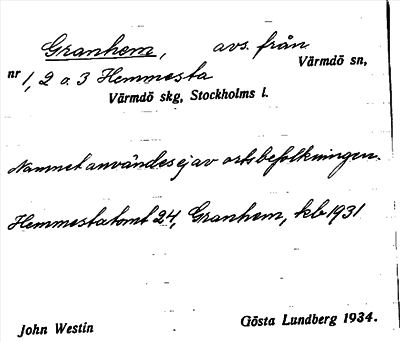 Granhem, avs. från
Värmdö sn,
nr 1, 2 o. 3 Hemmesta
Värmdö skg, Stockholms l.
Namnet användes ej av ortsbefolkningen.
Hemmestatomt 24, Granhem, kb 1931
John Westin
Gösta Lundberg 1934.